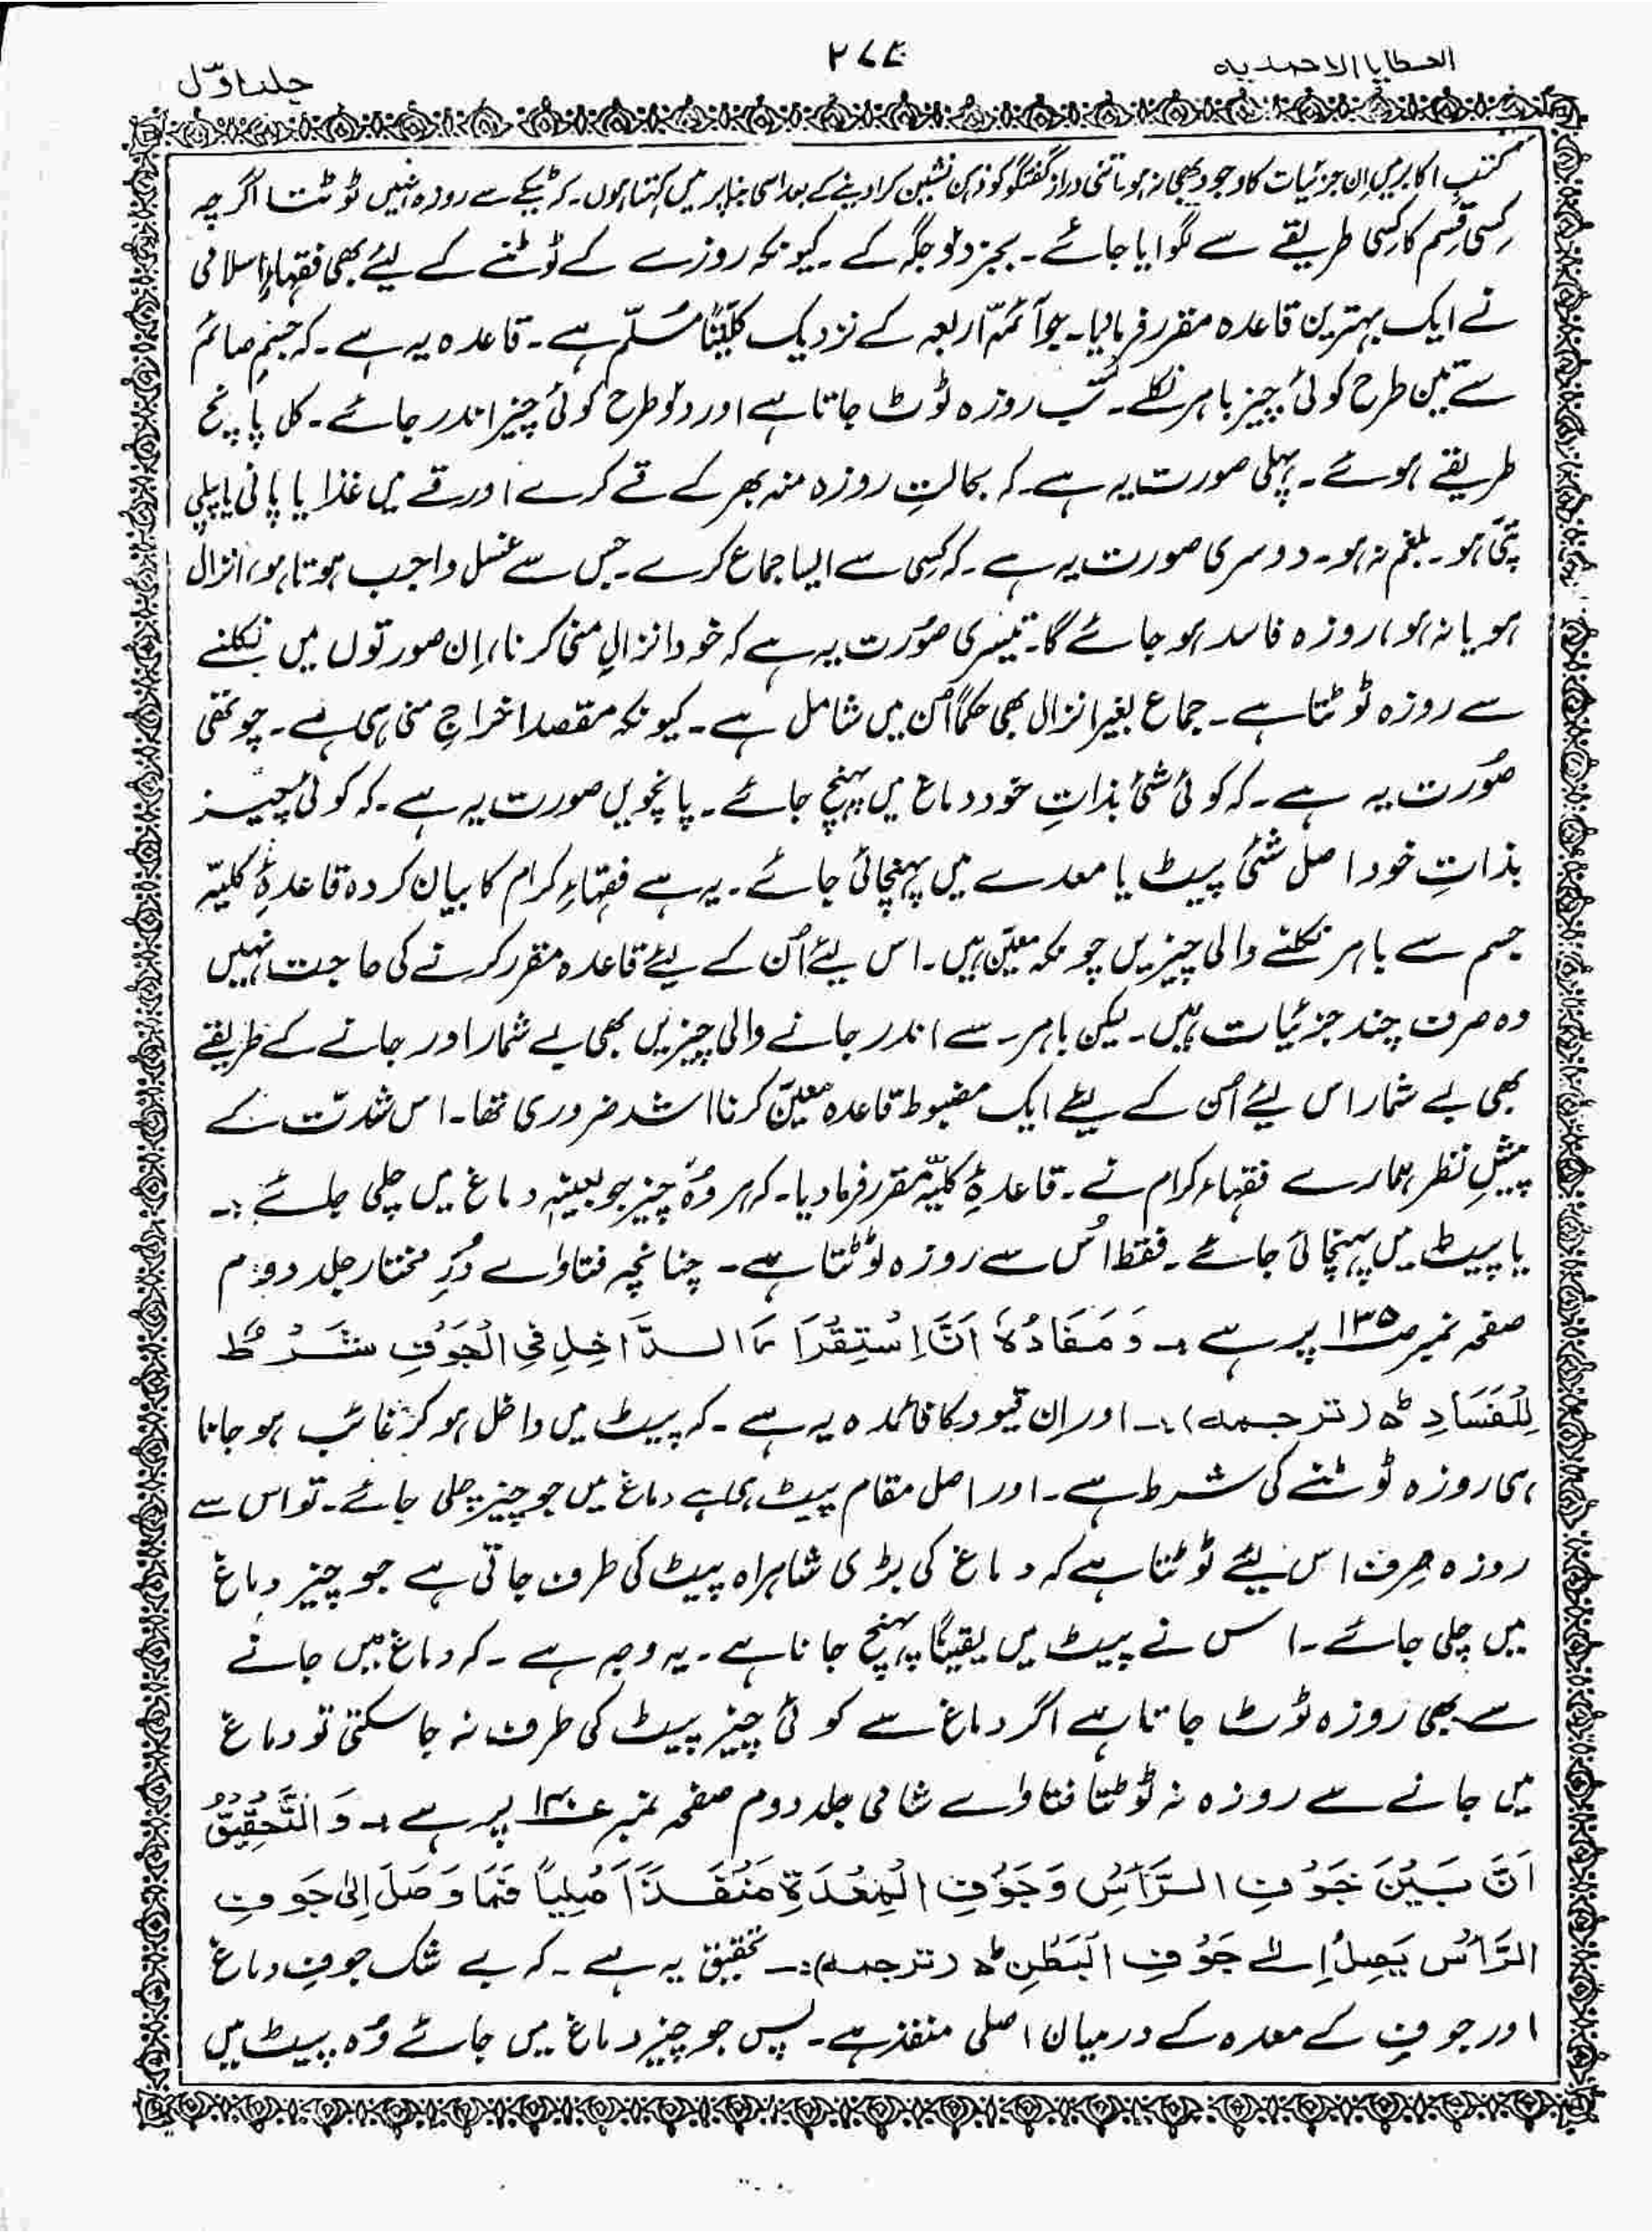 العطایا الاحمدیہ
۲۷۴
جلد اوّل
کتبِ اکابر میں اِن جزئیات کا وجود بھی نہ ہو۔ اتنی دراز گفتگو کو ذہن نشین کرا دینے کے بعد اسی بنا پر میں کہتا ہوں۔ کہ ٹیکے سے روزہ نہیں ٹوٹتا اگرچہ
کِسی قِسم کا کِسی طریقے سے لگوایا جائے۔ بجز دو جگہ کے۔ کیونکہ روزے کے ٹوٹنے کے لیئے بھی فقہاءِ اسلامی
نے ایک بہترین قاعدہ مقرر فرمایا۔ جو آئمّہ اربعہ کے نزدیک کلّیتًا مُسلّم ہے۔ قاعدہ یہ ہے۔ کہ جسمِ صائم
سے تین طرح کوئی چیز باہر نکلے۔ تب روزہ ٹوٹ جاتا ہے اور دو طرح کوئی چیز اندر جائے۔ کل پانچ
طریقے ہوئے۔ پہلی صورت یہ ہے۔ کہ بحالتِ روزہ منہ بھر کے قے کرے اور قے میں غذا یا پانی یا پیلی
پتّی ہو۔ بلغم نہ ہو۔ دوسری صورت یہ ہے۔ کہ کِسی سے ایسا جماع کرے۔ جس سے غسل واجب ہوتا ہو، انزال
ہو یا نہ ہو، روزہ فاسد ہو جائے گا۔ تیسری صوُرت یہ ہے کہ خود انزالِ منی کرنا، اِن صورتوں میں نکلنے
سے روزہ ٹوٹتا ہے۔ جماع بغیر انزال بھی حکماً اُس میں شامل ہے۔ کیونکہ مقصد اخراجِ منی ہی ہے۔ چوتھی
صوُرت یہ ہے۔ کہ کوئی شئ بذاتِ خود دماغ میں پہنچ جائے۔ پانچویں صورت یہ ہے۔ کہ کوئی چیز
بذاتِ خود اصل شئ پیٹ یا معدے میں پہنچائی جائے۔ یہ ہے فقہاءِ کرام کا بیان کردہ قاعدۂِ کلیّہ
جسم سے باہر نکلنے والی چیزیں چونکہ معیّن ہیں۔ اس لیئے اُن کے لیئے قاعدہ مقرر کرنے کی حاجت نہیں
وہ صرف چند جزئیات ہیں۔ لیکن باہر۔ سے اندر جانے والی چیزیں بھی بے شمار اور جانے کے طریقے
بھی بے شمار اس لیئے اُس کے لیئے ایک مضبوط قاعدہ معیّن کرنا اشد ضروری تھا۔ اس شدّت کے
پیشِ نظر ہمارے فقہاءِ کرام نے۔ قاعدۂِ کلیّہ مقرر فرما دیا۔ کہ ہر وُہ چیز جو بعینہٖ دماغ میں چلی جائے :۔
یا پیٹ میں پہنچائی جائے۔ فقط اُس سے روزہ ٹوٹتا ہے۔ چنانچہ فتاواے دُرِّ مختار جلد دوم
صفحہ نمبر ۱۳۵ پر ہے :۔ وَمَفَادُہٗ اَنَّ اِسْتِقْرَا مَا الدَّاخِلِ فِی الْجَوْفِ شَرْطٌ
لِلْفَسَادِ ط (ترجمہ) :۔ اور اِن قیود کا فائدہ یہ ہے۔ کہ پیٹ میں داخل ہو کر غائب ہو جانا
ہی روزہ ٹوٹنے کی شرط ہے۔ اور اصل مقام پیٹ ہی ہے دماغ میں جو چیز چلی جائے۔ تو اس سے
روزہ صِرف اس لیئے ٹوٹتا ہے کہ دماغ کی بڑی شاہراہ پیٹ کی طرف جاتی ہے جو چیز دماغ
میں چلی جائے۔ اس نے پیٹ میں یقیناً پہنچ جانا ہے۔ یہ وجہ ہے۔ کہ دماغ میں جانے
سے بھی روزہ ٹوٹ جاتا ہے اگر دماغ سے کوئی چیز پیٹ کی طرف نہ جا سکتی تو دماغ
میں جانے سے روزہ نہ ٹوٹتا فتاواے شامی جلد دوم صفحہ نمبر ۱۴۰ پر ہے :۔ وَالتَّحْقِیْقُ
اَنَّ بَیْنَ جَوْفِ الرَّاْسِ وَجَوْفِ الْمِعْدَۃِ مَنْفَذًا اَصْلِیاً فَمَا وَصَلَ اِلیٰ جَوفِ
الرَّاْسِ یَصِلُ اِلیٰ جَوْفِ الْبَطْنِ ط (ترجمہ) :۔ تحقیق یہ ہے۔ کہ بے شک جوفِ دماغ
اور جوفِ کے معدہ کے درمیان اصلی منفذ ہے۔ پس جو چیز دماغ میں جائے وُہ پیٹ میں